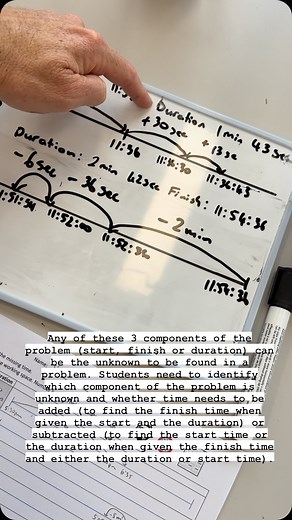 Duration 1min 43sec
+30sec
+ 13se
11:36
11:36:30
11:36:43
Duration: 2min 42sec Finish: 11:54:36
- 6sec - 36sec
- 2min
11:51:54
11:52:00
11:52:36
11:54:36
Any of these 3 components of the
problem (start, finish or duration) can
be the unknown to be found in a
problem. Students need to identify
which component of the problem is
unknown and whether time needs to be
added (to find the finish time when
given the start and the duration) or
subtracted (to find the start time or
the duration when given the finish time
and either the duration or start time).